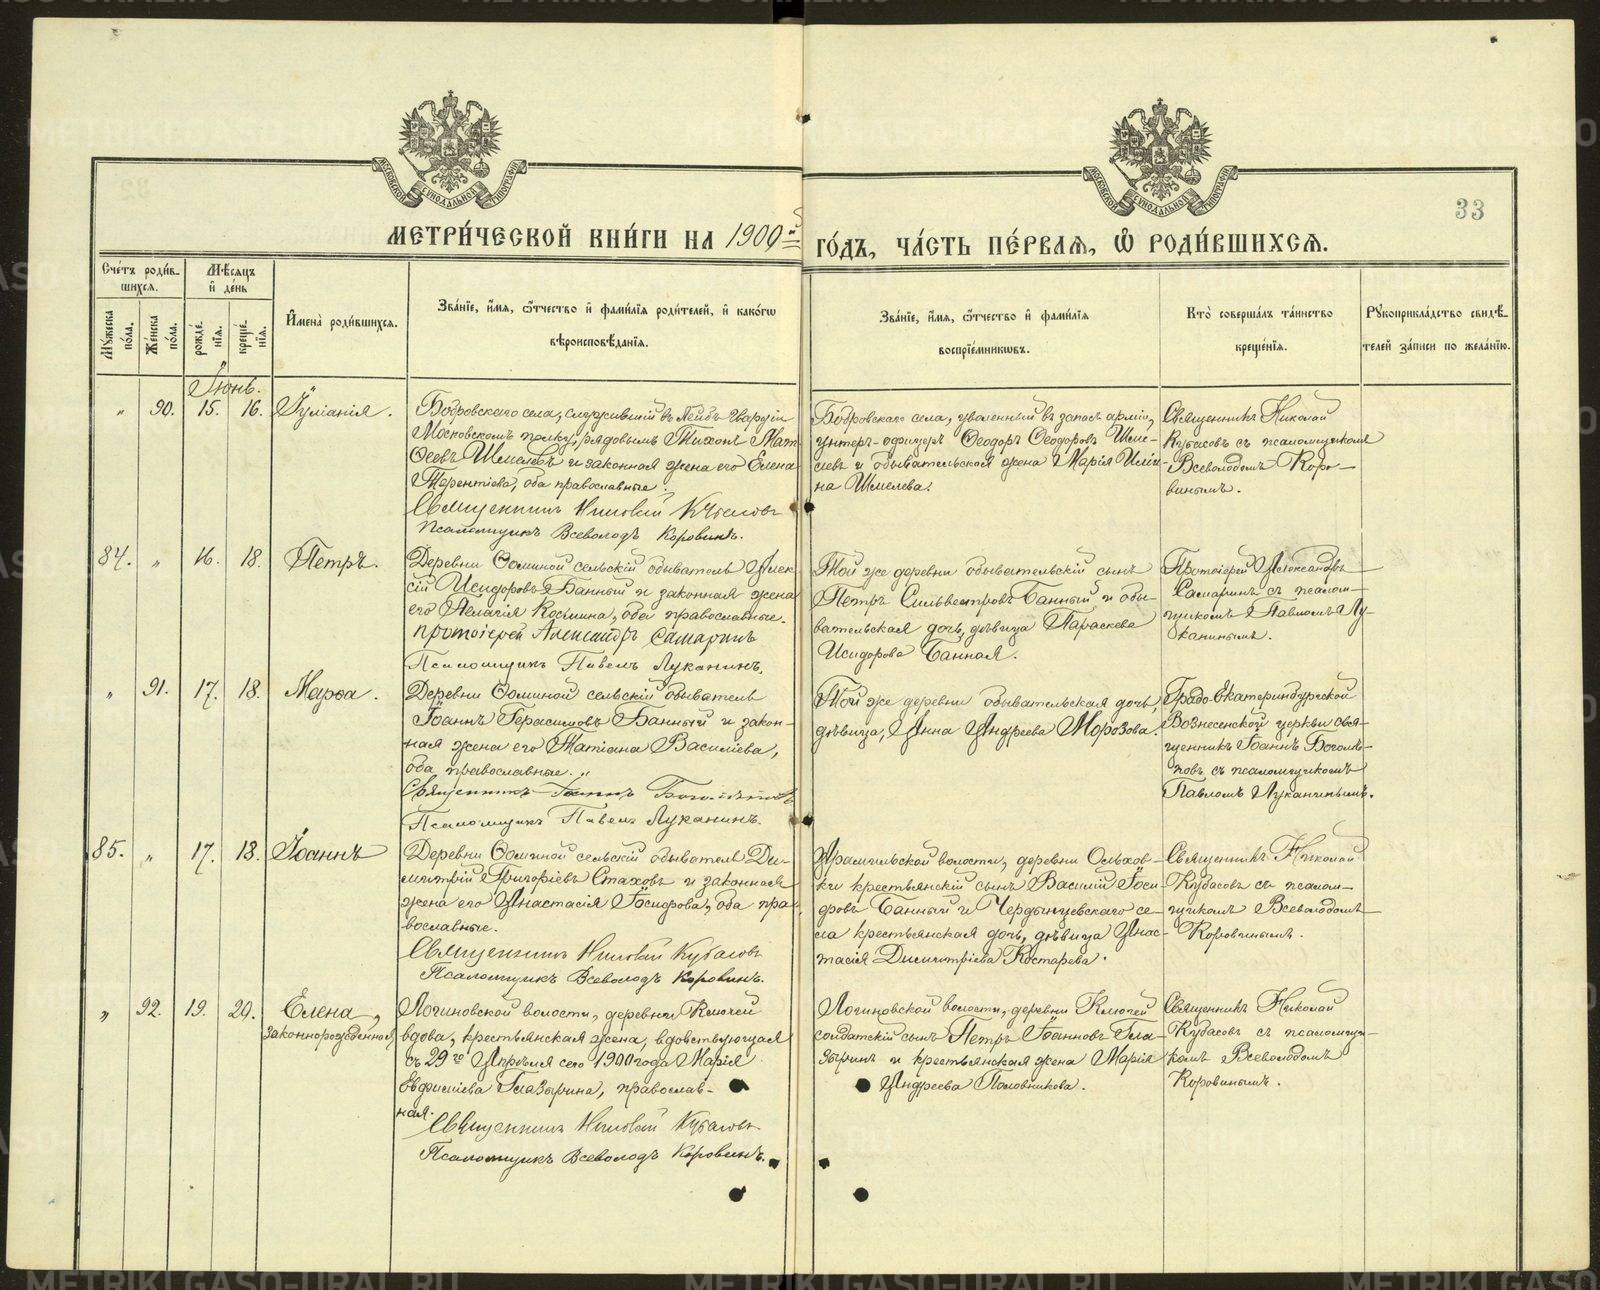 МОСКОВСКОЙ СѴНОДАЛЬНОЙ ТИПОГРАФІИ
МОСКОВСКОЙ СѴНОДАЛЬНОЙ ТИПОГРАФІИ
33
МЕТРИ́ЧЕСКОЙ КНИ́ГИ НА 1900й ГО́ДЪ, ЧА́СТЬ ПЕ́РВАЯ, Ѽ РОДИ́ВШИХСЯ.
Сче́тъ роди́в-
шихся.
Мѣ́сяцъ
и҆ де́нь
Мꙋ́жеска по́ла.
Же́нска по́ла.
рожде́нїя.
креще́нїя.
И҆мена̀ роди́вшихся.
Зва́нїе, и҆́мя, ѻ҆́тчество и҆ фами́лїя роди́телей, и҆ како́гѡ
вѣроисповѣ́данїя.
Зва́нїе, и҆́мя, ѻ҆́тчество и҆ фами́лїя
воспрїе́мникѡвъ.
Кто̀ соверша́лъ та́инство
креще́нїя.
Рꙋкоприкла́дство свидѣ́-
телей за́писи по жела́нїю.
Іюнь.
„ 90. 15. 16. Іуліанія.
Бобровскаго села, служившій въ Лейбъ Гвардіи
Московскомъ полку, рядовымъ Тихонъ Мат-
ѳеевъ Шмелевъ и законная жена его Елена
Терентіева, оба православные.
Священникъ Николай Кубасовъ
Псаломщикъ Всеволодъ Коровинъ.
Бобровскаго села, уволенный въ запасъ арміи,
унтеръ-офицеръ Ѳеодоръ Ѳеодоровъ Шме-
левъ и обывательская жена Марія Иліи-
на Шмелева.
Священникъ Николай
Кубасовъ съ псаломщикомъ
Всеволодомъ Коро-
винымъ.
84. „ 16. 18. Петръ.
Деревни Ѳоминой сельскій обыватель Алек-
сій Исидоровъ Банный и законная жена
его Пелагія Космина, оба православные.
протоіерей Александръ Самаринъ
Псаломщикъ Павелъ Луканинъ.
Той же деревни обывательскій сынъ
Петръ Сильвестровъ Банный и обы-
вательская дочь, дѣвица Параскева
Исидорова Банная.
Протоіерей Александръ
Самаринъ съ псалом-
щикомъ Павломъ Лу-
канинымъ.
„ 91. 17. 18. Марѳа.
Деревни Ѳоминой сельскій обыватель
Іоаннъ Герасимовъ Банный и закон-
ная жена его Татіана Василіева,
оба православные.
Священникъ Іоаннъ Боголѣповъ
Псаломщикъ Павелъ Луканинъ.
Той же деревни обывательская дочь,
дѣвица, Анна Андреева Морозова.
Градо-Екатеринбургской
Вознесенской церкви свя-
щенникъ Іоаннъ Боголѣ-
повъ съ псаломщикомъ
Павломъ Луканинымъ.
85. „ 17. 18. Іоаннъ
Деревни Ѳоминой сельскій обыватель Ди-
митрій Григоріевъ Стаховъ и законная
жена его Анастасія Іосифова, оба пра-
вославные.
Священникъ Николай Кубасовъ
Псаломщикъ Всеволодъ Коровинъ.
Арамильской волости, деревни Ольхов-
ки крестьянскій сынъ Василій Іоси-
фовъ Банный и Чердынцевскаго се-
ла крестьянская дочь, дѣвица Анас-
тасія Димитріева Костарева.
Священникъ Николай
Кубасовъ съ псалом-
щикомъ Всеволодомъ
Коровинымъ.
„ 92. 19. 20. Елена,
законнорожденная
Логиновской волости, деревни Ключей
вдова, крестьянская жена, вдовствующая
съ 29го Апрѣля сего 1900 года Марія
Евфиміева Глазырина, православ-
ная.
Священникъ Николай Кубасовъ
Псаломщикъ Всеволодъ Коровинъ.
Логиновской волости, деревни Ключей
солдатскій сынъ Петръ Іоанновъ Гла-
зыринъ и крестьянская жена Марія
Андреева Половникова.
Священникъ Николай
Кубасовъ съ псаломщи-
комъ Всеволодомъ
Коровинымъ.
METRIKI.GASO-URAL.RU